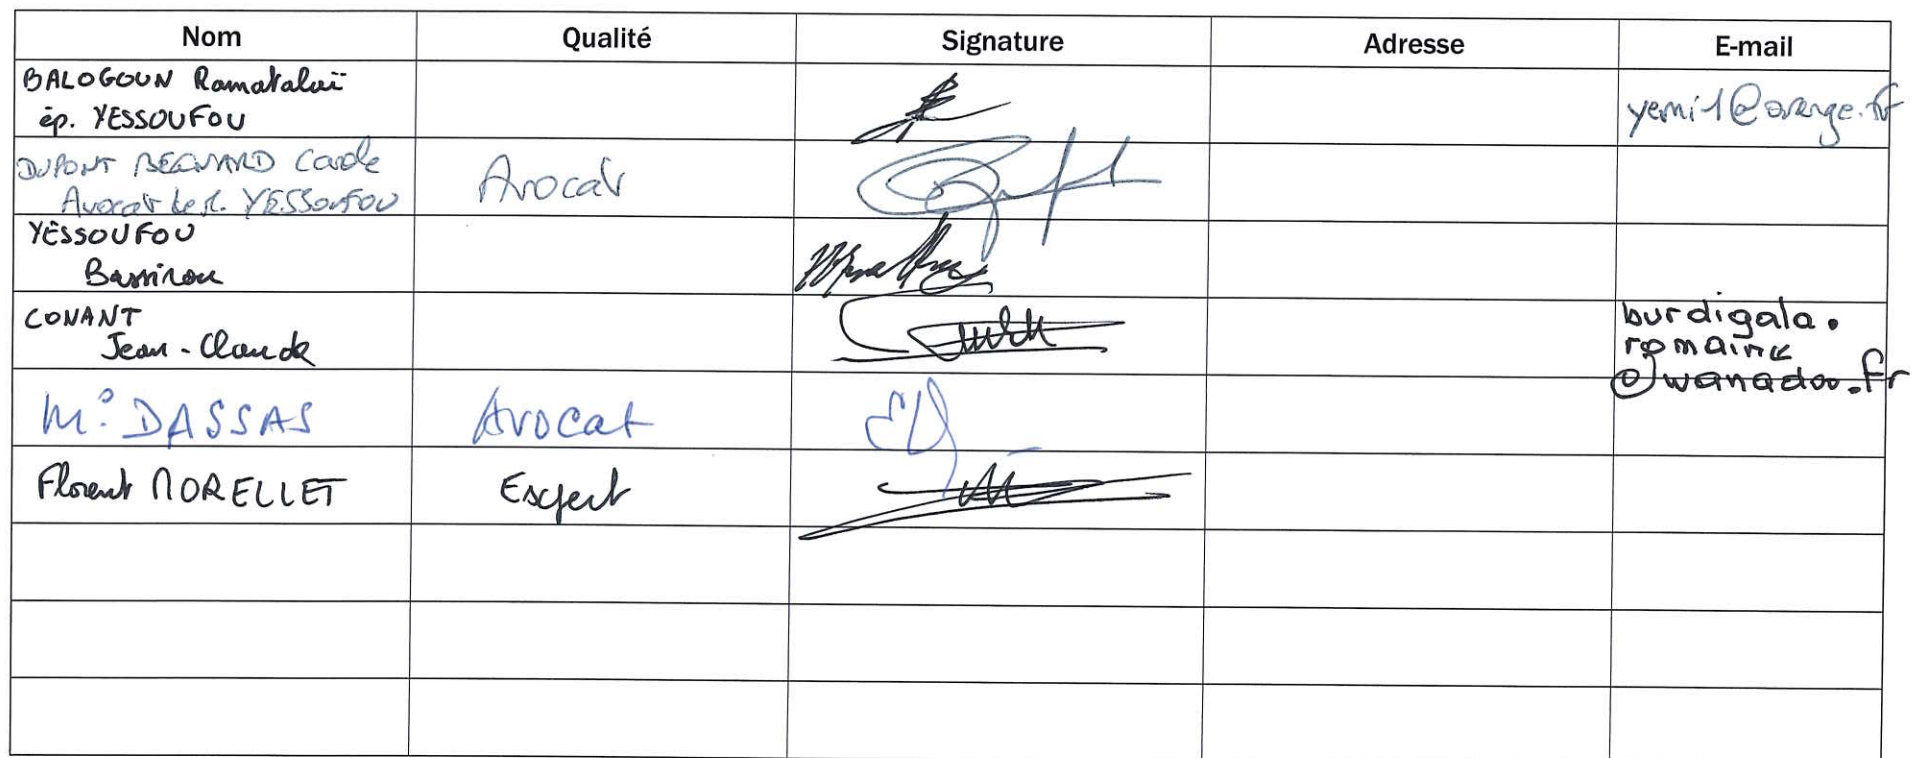 Nom Qualité Signature Adresse E-mail
BALOGOUN Ramatalaï
ép. YESSOUFOU
yemi1@orange.fr
DUPONT BEGNARD Carole
Avocat de M. YESSOUFOU
Avocat
YESSOUFOU
Bassirou
CONANT
Jean-Claude
burdigala.
romaine
@wanadoo.fr
Me DASSAS Avocat
Florent MORELLET Expert